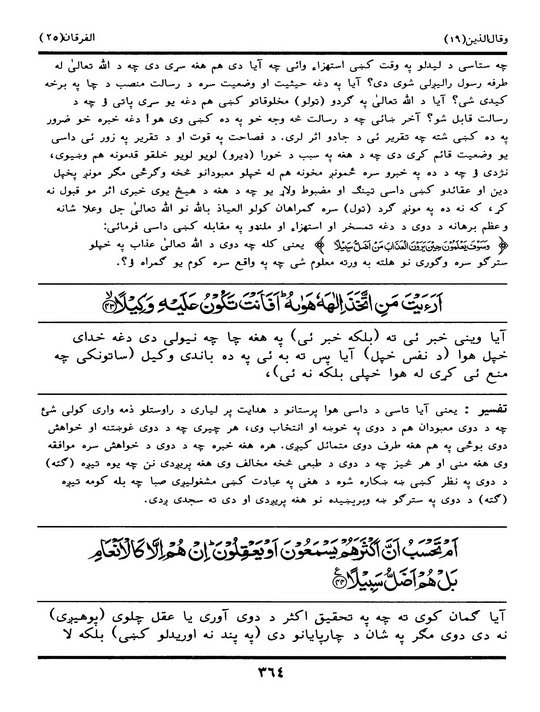 وقال الذین(۱۹)
الفرقان(۲۵)
چه ستاسی د لیدلو په وقت کښی استهزاء وائی چه آیا دی هم هغه سړی دی چه د الله تعالیٰ له
طرفه رسول رالیږلی شوی دی؟ آیا په دغه حیثیت او وضعیت سره د رسالت منصب د چا په برخه
کیدی شی؟ آیا د الله تعالیٰ په ګردو (تولو) مخلوقاتو کښی هم دغه یو سړی پاتی ؤ چه د
رسالت قابل شو؟ آخر ښائی چه د رسالت څه وجه خو په ده کښی وی هو! دغه خبره خو ضرور
په ده کښی شته چه تقریر ئی د جادو اثر لری. د فصاحت په قوت او د تقریر په زور ئی داسی
یو وضعیت قائم کړی دی چه د هغه په سبب د خورا (ډیرو) لویو لویو خلقو قدمونه هم وښویی،
نژدی ؤ چه د ده په خبرو سره څمونږ مخونه هم له خپلو معبودانو څخه وګرځی مګر مونږ پخپل
دین او عقائدو کښی داسی تینګ او مضبوط ولاړ یو چه د هغه د هیڅ یوی خبری اثر مو قبول نه
کړ، که نه ده په مونږ ګرد (تول) سره ګمراهان کولو العیاذ بالله نو الله تعالیٰ جل وعلا شانه
وعظم برهانه د دوی د دغه تمسخر او استهزاء او ملنډو په مقابله کښی داسی فرمائی:
﴿ وسوف یعلمون حین یرون العذاب من اضل سبیلا ﴾ یعنی کله چه دوی د الله تعالیٰ عذاب په خپلو
سترګو سره وګوری نو هلته به ورته معلوم شی چه په واقع سره کوم یو ګمراه ؤ؟.
اَرَءَيْتَ مَنِ اتَّخَذَ اِلٰهَهٗ هَوٰىهُ ۗ اَفَاَنْتَ تَكُوْنُ عَلَيْهِ وَكِيْلًا ۙ﴿۴۳﴾
آیا وینی خبر ئی ته (بلکه خبر ئی) په هغه چا چه نیولی دی دغه خدای
خپل هوا (د نفس خپل) آیا پس ته به ئی په ده باندی وکیل (ساتونکی چه
منع ئی کړی له هوا خپلی بلکه نه ئی)،
تفسیر : یعنی آیا تاسی د داسی هوا پرستانو د هدایت پر لیاری د راوستلو ذمه واری کولی شئ
چه د دوی معبودان هم د دوی په خوښه او انتخاب وی، هر چیری چه د دوی غوښتنه او خواهش
دوی بوځی په هم هغه طرف دوی متمائل کیږی. هره هغه خبره چه د دوی د خواهش سره موافقه
وی هغه منی او هر څیز چه د دوی د طبعی څخه مخالف وی هغه پریږدی نن چه یوه تیږه (گته)
د دوی په نظر کښی ښه ښکاره شوه د هغی په عبادت کښی مشغولیږی صبا چه بله کومه تیږه
(گته) د دوی په سترګو ښه وبریښیده نو هغه پریږدی او دی ته سجدی ږدی.
اَمْ تَحْسَبُ اَنَّ اَكْثَرَهُمْ يَسْمَعُوْنَ اَوْ يَعْقِلُوْنَ ۗ اِنْ هُمْ اِلَّا كَالْاَنْعَامِ
بَلْ هُمْ اَضَلُّ سَبِيْلًا ﴿۴۴﴾
آیا ګمان کوی ته چه په تحقیق اکثر د دوی آوری یا عقل چلوی (پوهیږی)
نه دی دوی مګر په شان د چارپایانو دی (په پند نه اوریدلو کښی) بلکه لا
۳۶۴